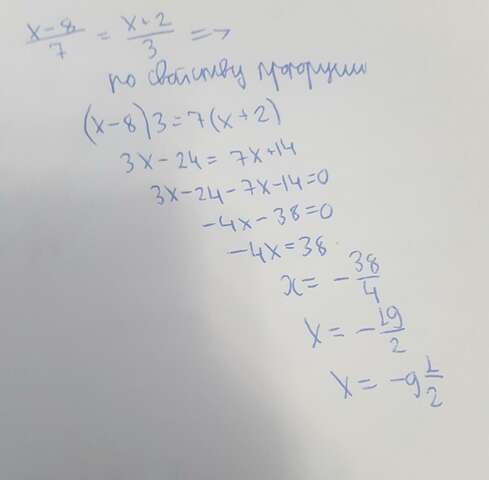 x-8/7 = x+2/3 =>
по свойству пропорции
(x-8)3=7(x+2)
3x-24=7x+14
3x-24-7x-14=0
-4x-38=0
-4x=38
x=-38/4
x=-19/2
x=-9 1/2